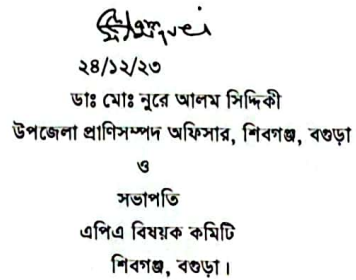 ২৪/১২/২৩
ডাঃ মোঃ নুরে আলম সিদ্দিকী
উপজেলা প্রাণিসম্পদ অফিসার, শিবগঞ্জ, বগুড়া
ও
সভাপতি
এপিএ বিষয়ক কমিটি
শিবগঞ্জ, বগুড়া।